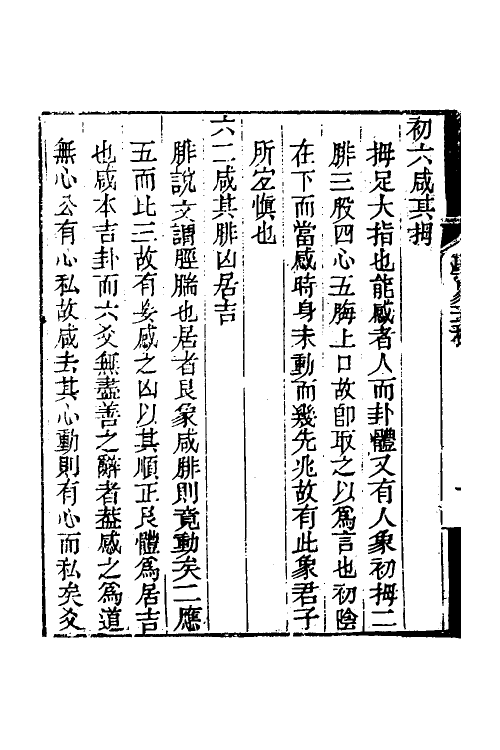 初六咸其拇
拇足大指也能感者人而卦體又有人象初拇二
腓三股四心五脢上口故即取之以爲言也初陰
在下而當感時身未動而幾先兆故有此象君子
所宜愼也
六二咸其腓凶居吉
腓說文謂脛腨也居者艮象咸腓則竟動矣二應
五而比三故有妄感之凶以其順正艮體爲居吉
也咸本吉卦而六爻無盡善之辭者葢感之爲道
無心公有心私故咸去其心動則有心而私矣爻